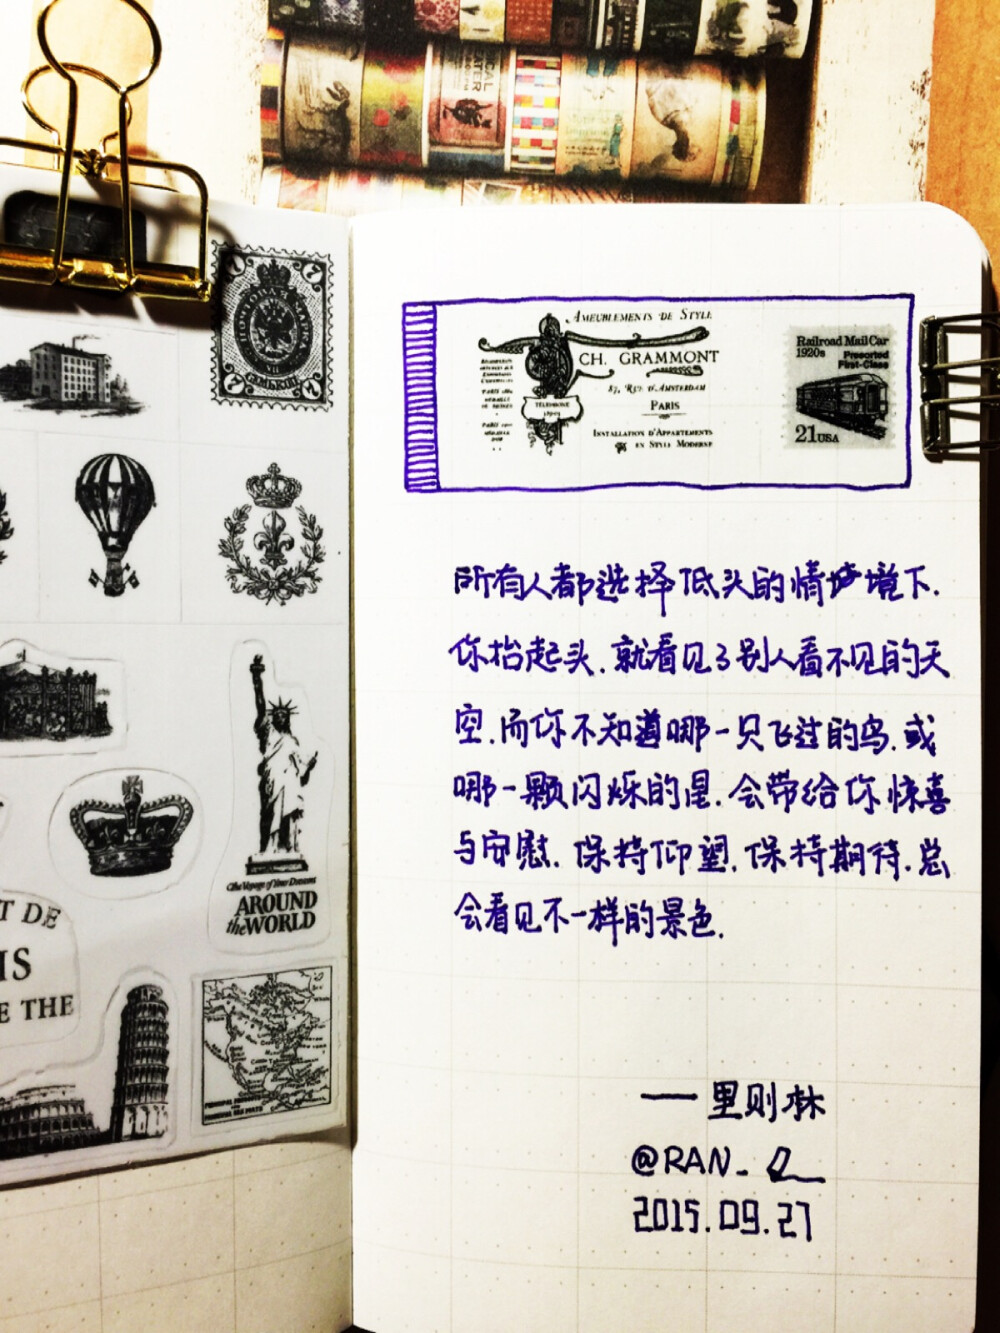 ПОЧТОВАЯ МАРКА
7
7
7
7
T DE
IS
E THE
The Voyage of Your Dreams
AROUND
the WORLD
AMEUBLEMENTS DE STYLE
CH. GRAMMONT
87, RUE D'AMSTERDAM
PARIS
TÉLÉPHONE
INSTALLATION D'APPARTEMENTS
EN STYLE MODERNE
Railroad Mail Car
1920s
Presorted
First-Class
21USA
所有人都选择低头的情境下.
你抬起头.就看见了别人看不见的天
空.而你不知道哪一只飞过的鸟.或
哪一颗闪烁的星.会带给你惊喜
与安慰.保持仰望.保持期待.总
会看见不一样的景色.
——里则林
@RAN_
2015.09.27